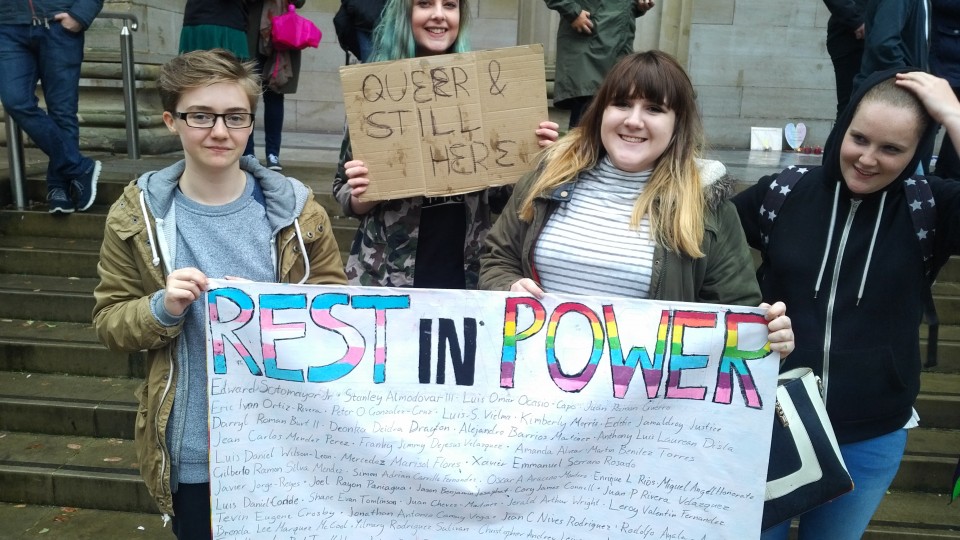 QUEER &
STILL
HERE
REST IN POWER
Edward Sotomayor Jr · Stanley Almodovar III · Luis Omar Ocasio-Capo · Juan Ramon Guerro
Eric Ivan Ortiz-Rivera · Peter O Gonzalez-Cruz · Luis S. Vielma · Kimberly Morris · Eddie Jamaldroy Justice
Darryl Roman Burt II · Deonka Deidra Drayton · Alejandro Barrios Martinez · Anthony Luis Laurean Disla
Jean Carlos Mendez Perez · Franky Jimmy Dejesus Velazquez · Amanda Alvear · Martin Benitez Torres
Luis Daniel Wilson-Leon · Mercedez Marisol Flores · Xavier Emmanuel Serrano Rosado
Gilberto Ramon Silva Menendez · Simon Adrian Carrillo Fernandez · Oscar A Aracena · Enrique L Rios · Miguel Angel Honorato
Javier Jorge-Reyes · Joel Rayon Paniagua · Jason Benjamin Josaphat · Cory James Connell · Juan P Rivera Velazquez
Luis Daniel Conde · Shane Evan Tomlinson · Juan Chevez-Martinez · Jerald Arthur Wright · Leroy Valentin Fernandez
Tevin Eugene Crosby · Jonathan Antonio Camuy Vega · Jean C Nives Rodriguez · Rodolfo Ayala
Brenda Lee Marquez McCool · Yilmary Rodriguez Solivan · Christopher Andrew